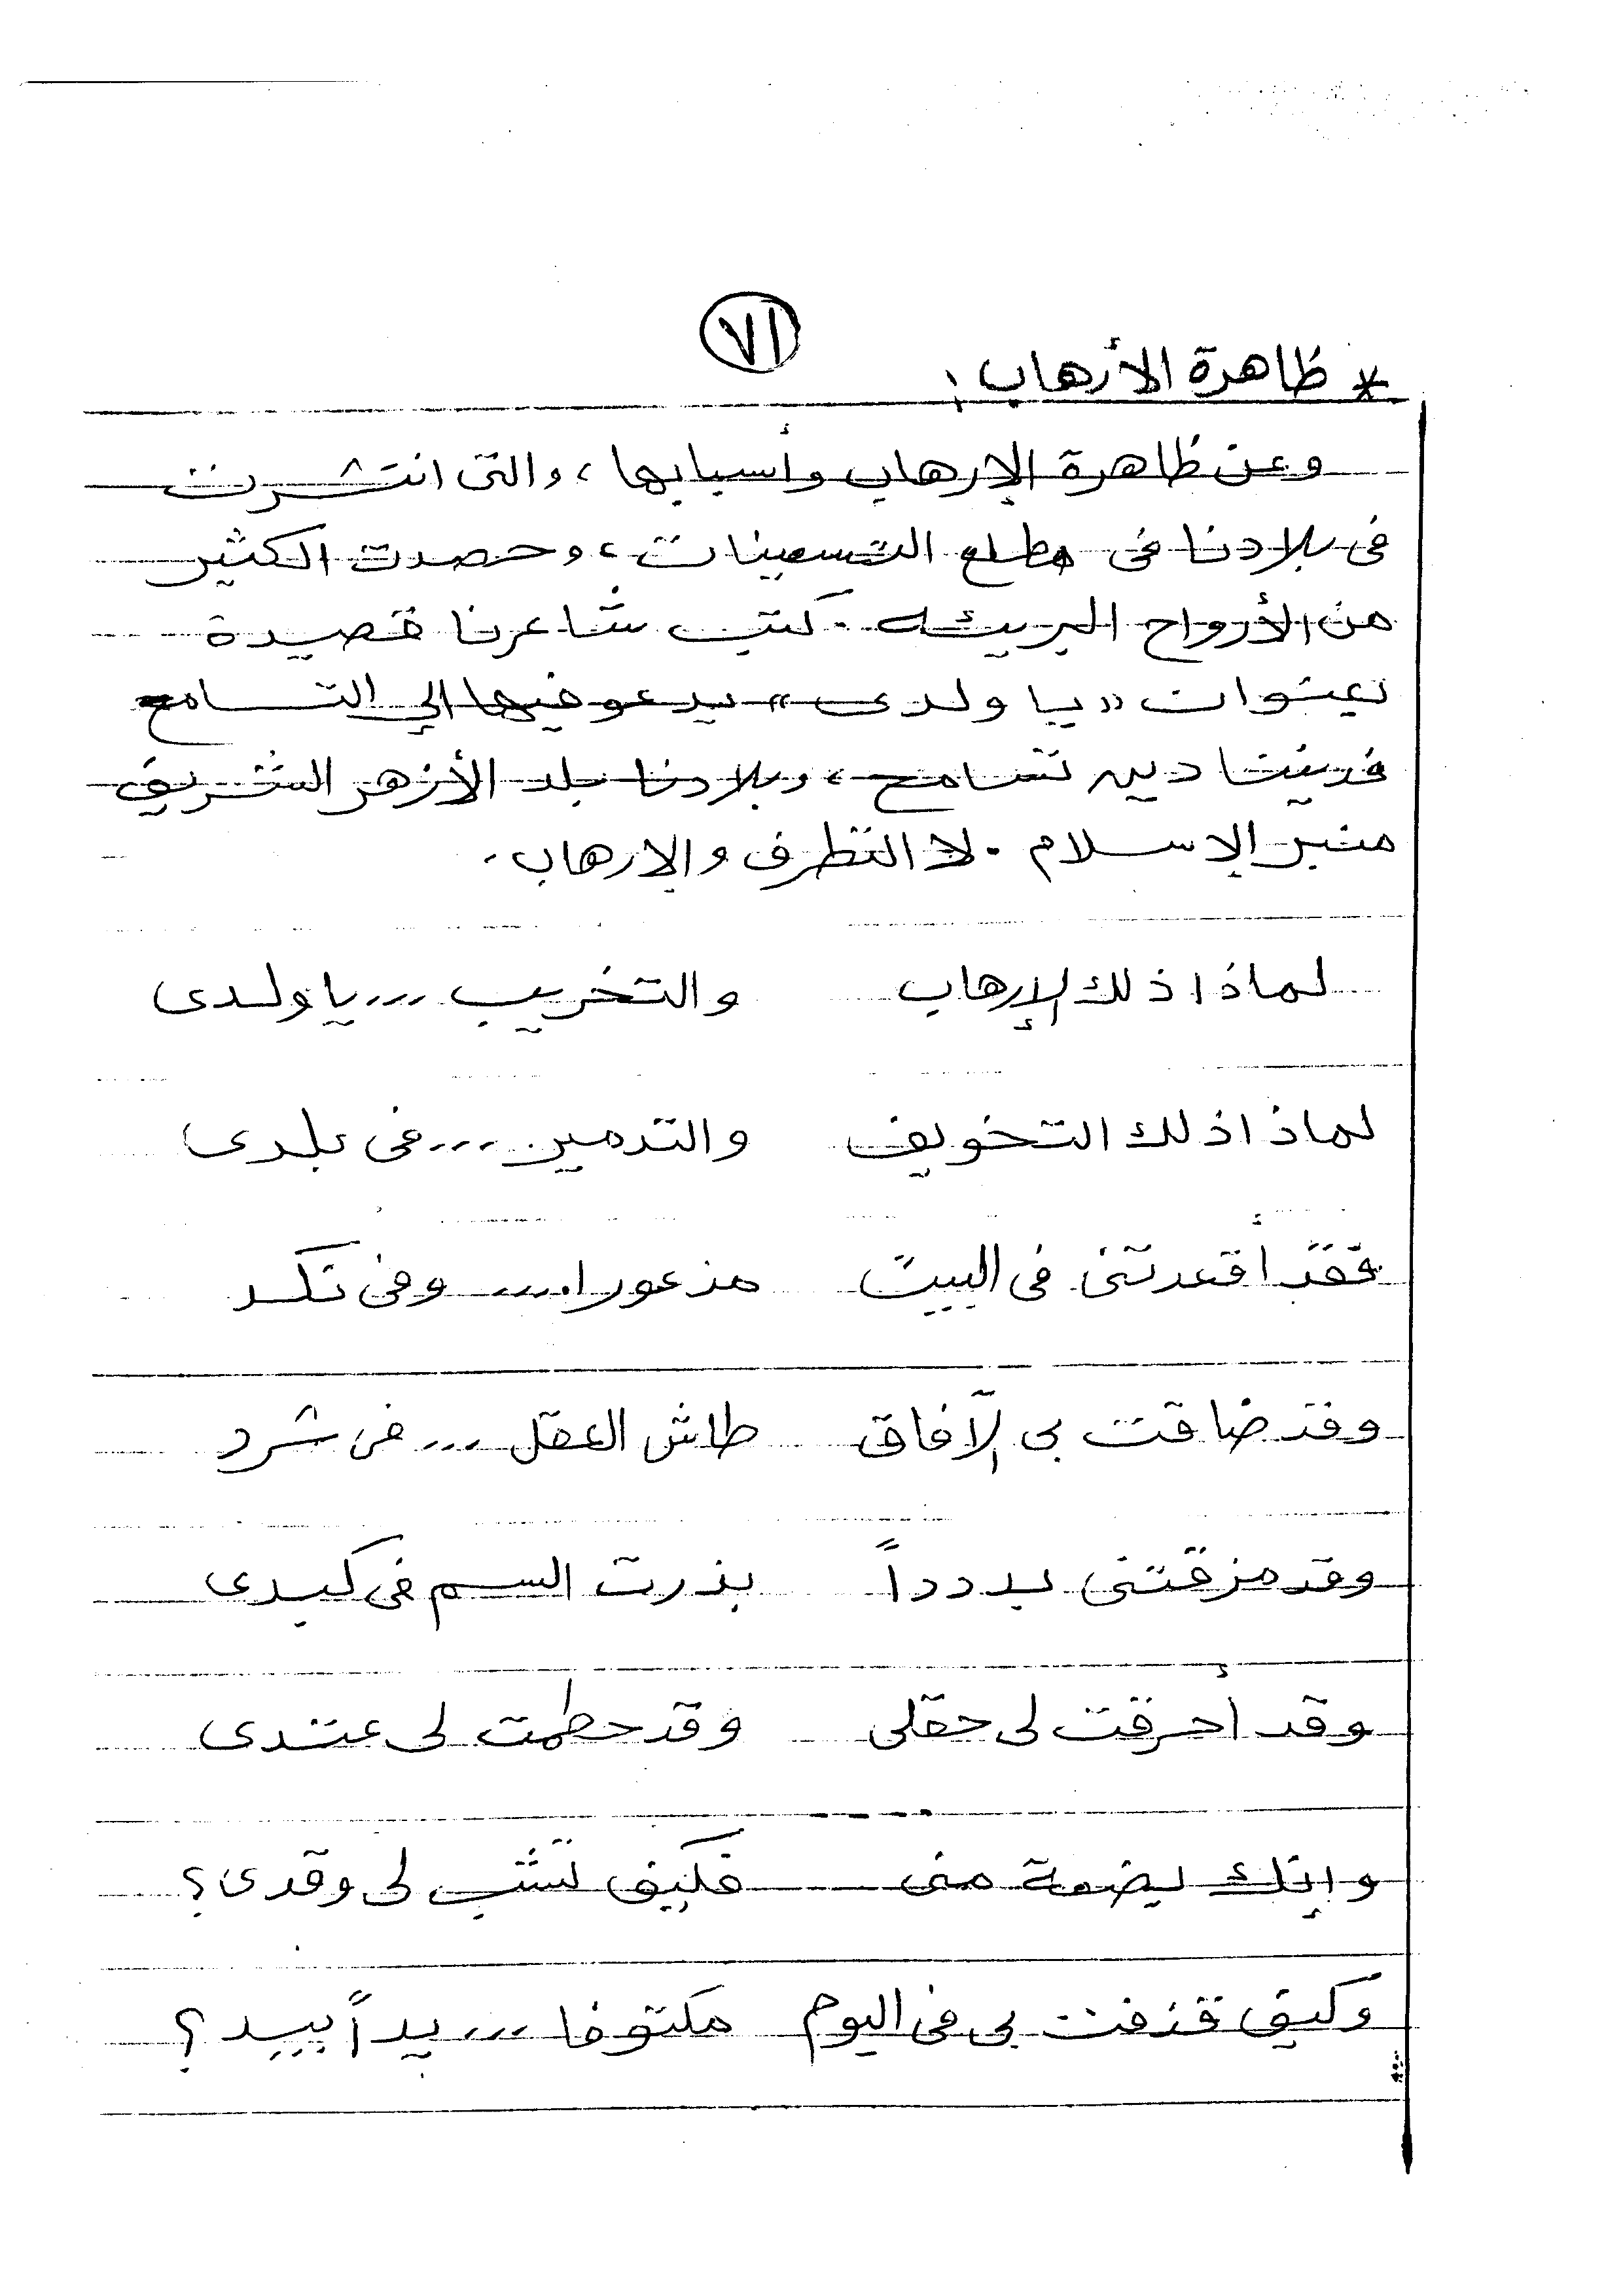 ٧١
* ظاهرة الأرهاب:
وعن ظاهرة الإرهاب وأسبابها، والتى انتشرت
فى بلادنا فى مطلع التسعينات، وحصدت الكثير
من الأرواح البريئه. كتب شاعرنا قصيدة
بعنوان «يا ولدى» يدعو فيها إلى التسامح
فديننا دين تسامح، وبلادنا بلد الأزهر الشريف
منبر الإسلام. لا التطرف والإرهاب.
لماذا ذلك الإرهاب والتخريب... يا ولدى
لماذا ذلك التخويف والتدمير... فى بلدى
فقد أقعدتنى فى البيت مذعورا.... وفى نكد
وقد ضاقت بى الآفاق طاش العقل... فى شرد
وقد مزقتنى بدداً بذرت السم فى كبدى
وقد أحرقت لى حقلى وقد حطمت لى عندى
وإنك بضعة منى فكيف تشب لى وقدى؟
وكيف قذفت بى فى اليوم مكتوفا... يداً بيد؟